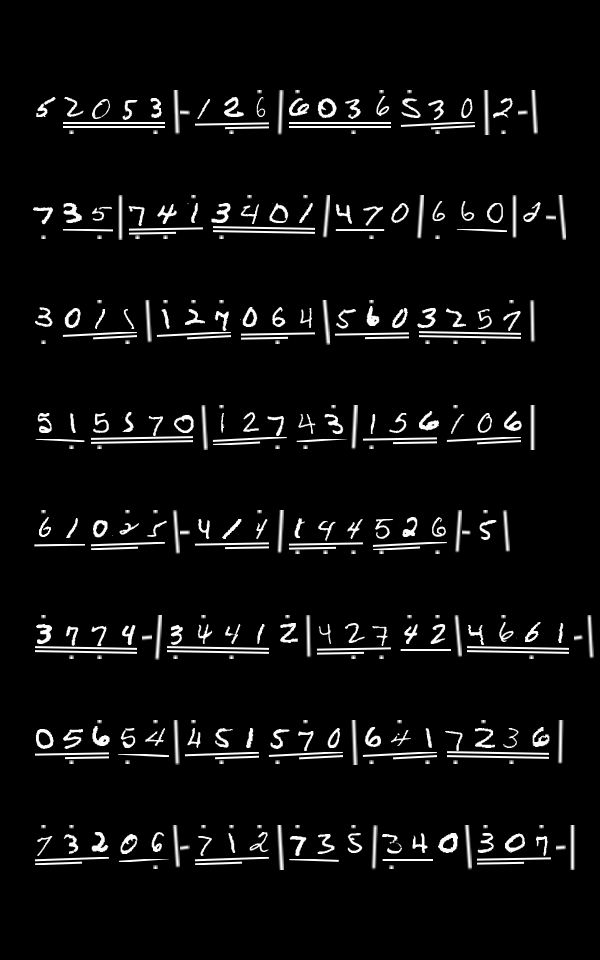 52053|-126|6036530|2-|
735|7413401|470|6660|2-|
3011|127064|5603257|
515570|12743|156106|
61025|-414|144526|-5|
3774-|34412|42742|4661-|
05654|451570|6417236|
73206|-712|735|340|307-|